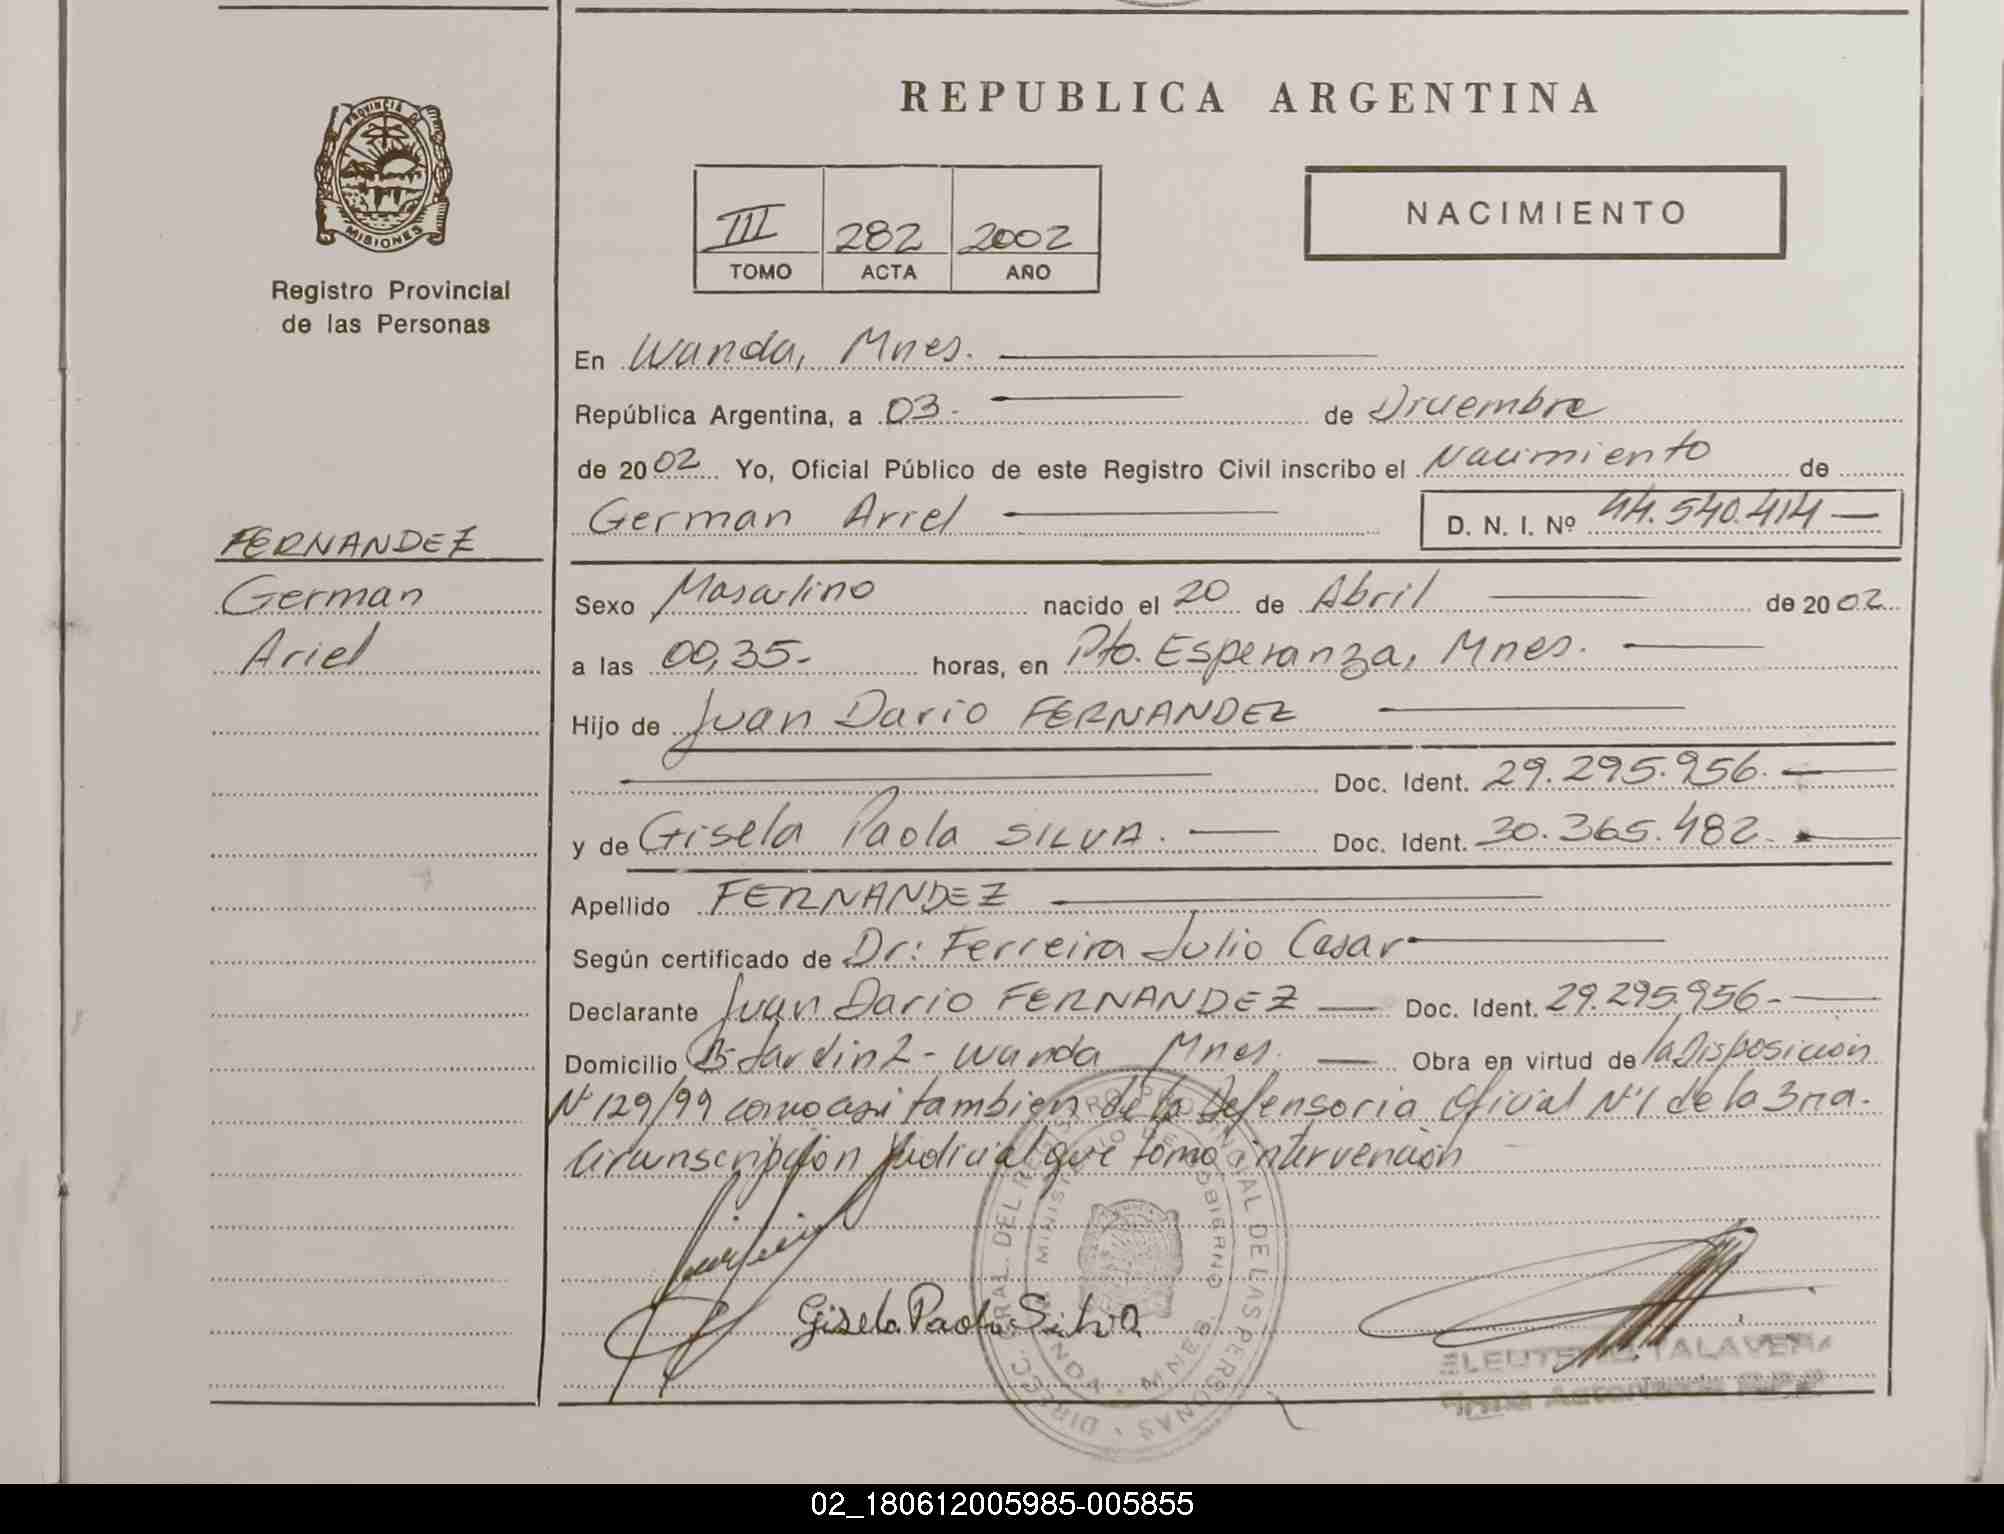 REPUBLICA ARGENTINA
PROVINCIA DE
MISIONES
Registro Provincial
de las Personas
III 282 2002
TOMO ACTA AÑO
NACIMIENTO
En Wanda, Mnes.
República Argentina, a 03.- de Diciembre
de 2002 Yo, Oficial Público de este Registro Civil inscribo el Nacimiento de
German Ariel D. N. I. Nº 44.540.414
FERNANDEZ
German
Ariel
Sexo Masculino nacido el 20 de Abril de 2002
a las 00,35.- horas, en Pto. Esperanza, Mnes.
Hijo de Juan Dario FERNANDEZ
Doc. Ident. 29.295.956.
y de Gisela Paola SILVA. Doc. Ident. 30.365.482
Apellido FERNANDEZ
Según certificado de Dr: Ferreira Julio Cesar
Declarante Juan Dario FERNANDEZ Doc. Ident. 29.295.956-
Domicilio Bº Jardin 2 - Wanda Mnes. Obra en virtud de la Disposición
Nº 129/99 como asi tambien de la Defensoria Oficial Nº 1 de la 3ra.
Circunscripción Judicial que tomo intervención
Gisela Paola Silva
DIRECC. GRAL. DEL REGISTRO PROVINCIAL DE LAS PERSONAS
MINISTERIO DE GOBIERNO
WANDA - MNES
ELEUTERIO TALAVERA
Firma Autorizada
02_180612005985-005855